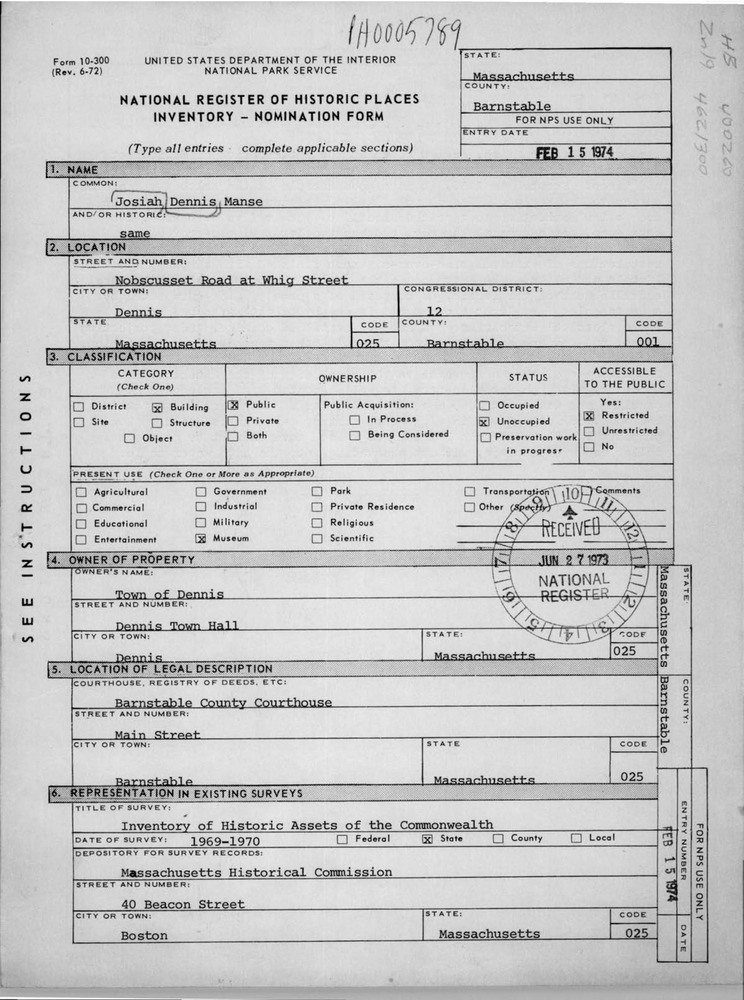 PH0005789
Form 10-300
(Rev. 6-72)
UNITED STATES DEPARTMENT OF THE INTERIOR
NATIONAL PARK SERVICE
NATIONAL REGISTER OF HISTORIC PLACES
INVENTORY - NOMINATION FORM
(Type all entries - complete applicable sections)
STATE:
Massachusetts
COUNTY:
Barnstable
FOR NPS USE ONLY
ENTRY DATE
FEB 15 1974
1. NAME
COMMON:
Josiah Dennis Manse
AND/OR HISTORIC:
same
2. LOCATION
STREET AND NUMBER:
Nobscusset Road at Whig Street
CITY OR TOWN:
Dennis
CONGRESSIONAL DISTRICT:
12
STATE
Massachusetts
CODE
025
COUNTY:
Barnstable
CODE
001
3. CLASSIFICATION
CATEGORY
(Check One)
OWNERSHIP
STATUS
ACCESSIBLE
TO THE PUBLIC
☐ District ☒ Building
☐ Site ☐ Structure
☐ Object
☒ Public
☐ Private
☐ Both
Public Acquisition:
☐ In Process
☐ Being Considered
☐ Occupied
☒ Unoccupied
☐ Preservation work
in progress
Yes:
☒ Restricted
☐ Unrestricted
☐ No
PRESENT USE (Check One or More as Appropriate)
☐ Agricultural ☐ Government ☐ Park ☐ Transportation ☐ Comments
☐ Commercial ☐ Industrial ☐ Private Residence ☐ Other (Specify)
☐ Educational ☐ Military ☐ Religious
☐ Entertainment ☒ Museum ☐ Scientific
RECEIVED
JUN 27 1973
NATIONAL
REGISTER
4. OWNER OF PROPERTY
OWNER'S NAME:
Town of Dennis
STREET AND NUMBER:
Dennis Town Hall
CITY OR TOWN:
Dennis
STATE:
Massachusetts
CODE
025
5. LOCATION OF LEGAL DESCRIPTION
COURTHOUSE, REGISTRY OF DEEDS, ETC:
Barnstable County Courthouse
STREET AND NUMBER:
Main Street
CITY OR TOWN:
Barnstable
STATE
Massachusetts
CODE
025
6. REPRESENTATION IN EXISTING SURVEYS
TITLE OF SURVEY:
Inventory of Historic Assets of the Commonwealth
DATE OF SURVEY: 1969-1970 ☐ Federal ☒ State ☐ County ☐ Local
DEPOSITORY FOR SURVEY RECORDS:
Massachusetts Historical Commission
STREET AND NUMBER:
40 Beacon Street
CITY OR TOWN:
Boston
STATE:
Massachusetts
CODE
025
SEE INSTRUCTIONS
STATE:
Massachusetts
COUNTY:
Barnstable
ENTRY NUMBER
FEB 15 1974
DATE
FOR NPS USE ONLY